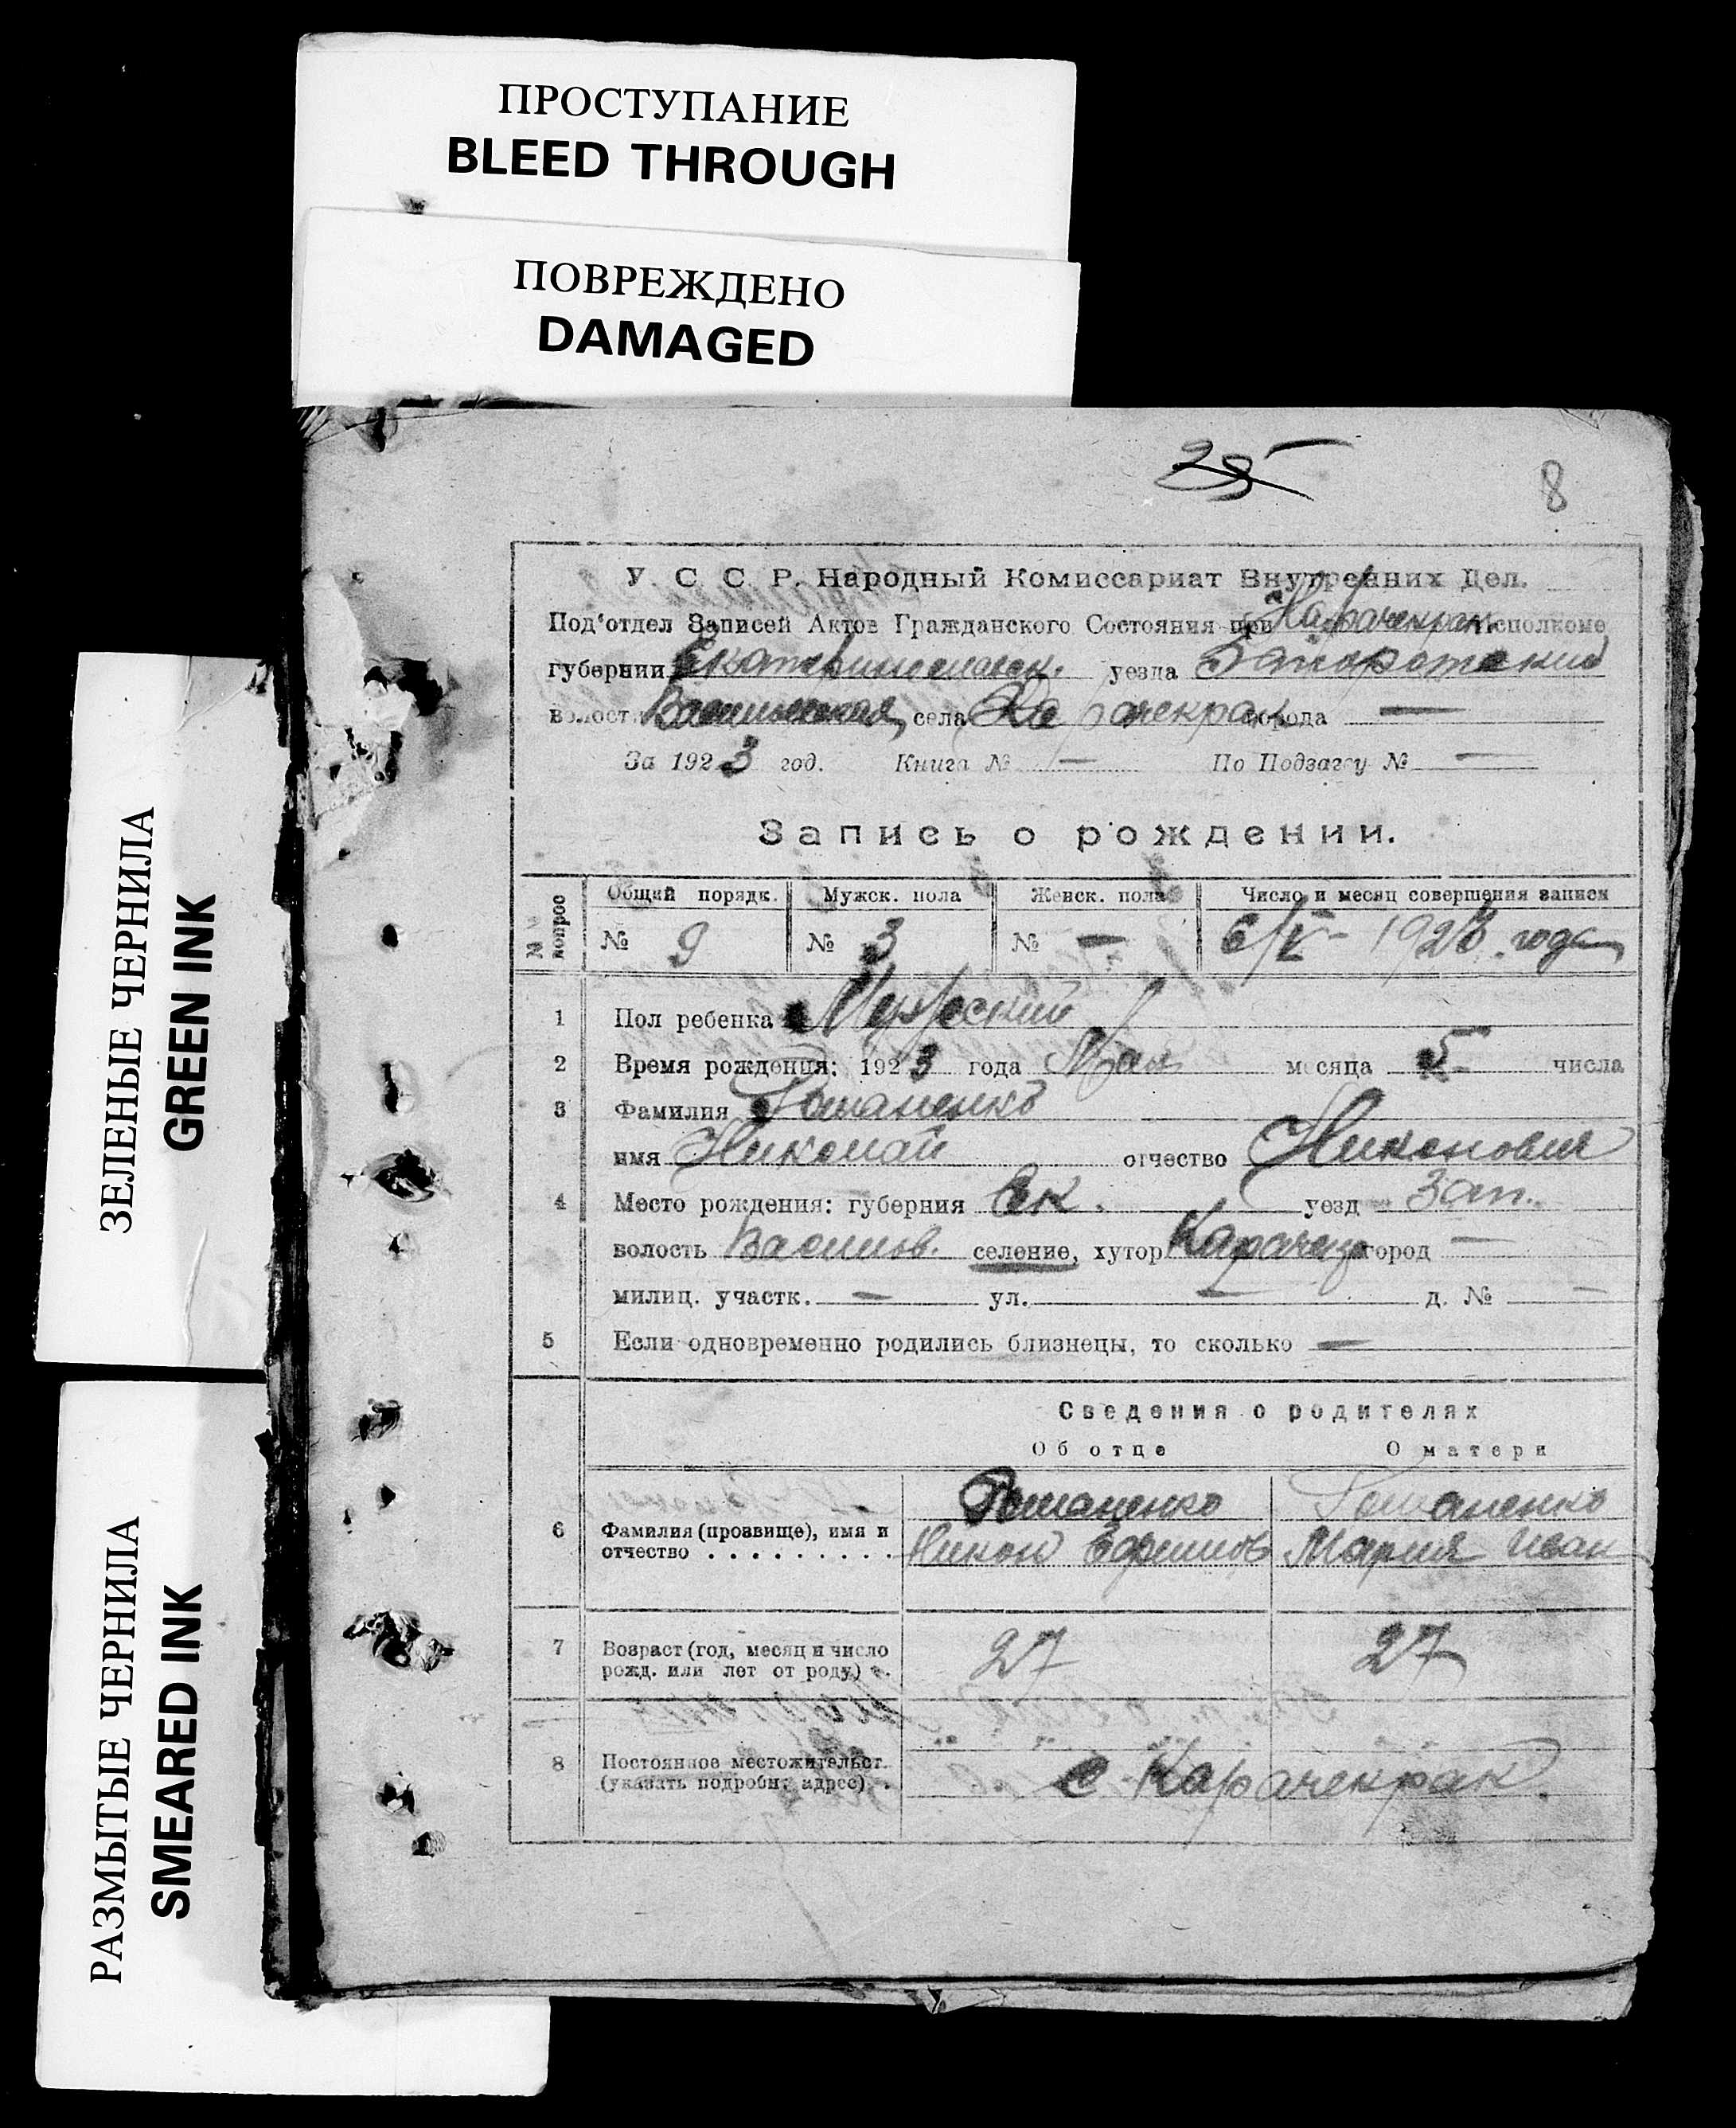 ПРОСТУПАНИЕ
BLEED THROUGH
ПОВРЕЖДЕНО
DAMAGED
ЗЕЛЕНЫЕ ЧЕРНИЛА
GREEN INK
РАЗМЫТЫЕ ЧЕРНИЛА
SMEARED INK
25
8
У С С Р. Народный Комиссариат Внутренних Дел.
Под'отдел Записей Актов Гражданского Состояния при Карачекрак. Исполкоме
губернии Екатеринославск. уезда Запорожский
волости Васильевская, села Карачекрак города —
За 1923 год. Книга № — По Подзагсу № —
Запись о рождении.
№№ вопрос Общий порядк. Мужск. пола Женск. пола Число и месяц совершения записи
№ 9 № 3 № — 6/V - 1923. года
1 Пол ребенка Мужеский
2 Время рождения: 1923 года Мая месяца 5 числа
3 Фамилия Романенко
имя Николай отчество Никонович
4 Место рождения: губерния Ек. уезд Зап.
волость Васильев. селение, хутор Карачекр город —
милиц. участк. — ул. — д. № —
5 Если одновременно родились близнецы, то сколько —
Сведения о родителях
Об отце О матери
Романенко Романенко
6 Фамилия (прозвище), имя и
отчество . . . . . . . . . Никон Ефимов Мария Иван
7 Возраст (год, месяц и число
рожд. или лет от роду) . . 27 27
8 Постоянное местожительст.
(указать подробн. адрес) . . с Карачекрак.